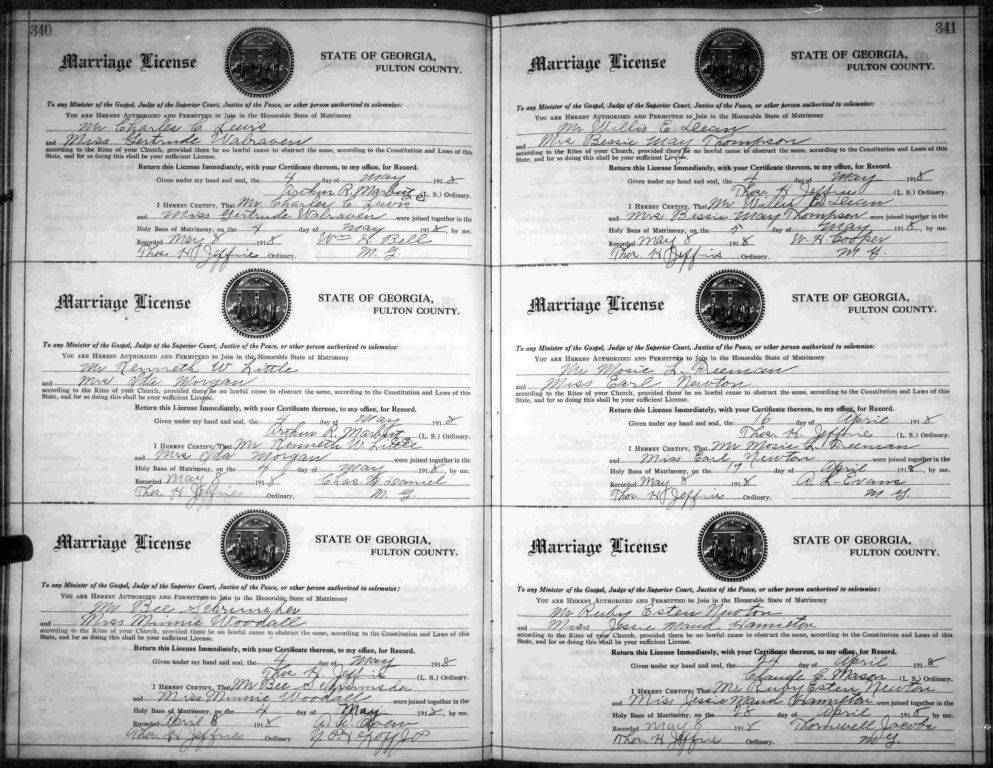 340
Marriage License
STATE OF GEORGIA,
FULTON COUNTY.
To any Minister of the Gospel, Judge of the Superior Court, Justice of the Peace, or other person authorized to solemnize:
YOU ARE HEREBY AUTHORIZED AND PERMITTED to Join in the Honorable State of Matrimony
Mr Charles C. Lewis
and Miss Gertrude Walraven
according to the Rites of your Church, provided there be no lawful cause to obstruct the same, according to the Constitution and Laws of this
State, and for so doing this shall be your sufficient License.
Return this License Immediately, with your Certificate thereon, to my office, for Record.
Given under my hand and seal, the 4 day of May 1918
Arthur R. Marbut (L. S.) Ordinary.
I HEREBY CERTIFY, That Mr Charles C. Lewis
and Miss Gertrude Walraven were joined together in the
Holy Bans of Matrimony, on the 4 day of May 1918, by me.
Recorded May 8 1918 Wm H. Bell
Thos. H Jeffries Ordinary. M. G.
Marriage License
STATE OF GEORGIA,
FULTON COUNTY.
To any Minister of the Gospel, Judge of the Superior Court, Justice of the Peace, or other person authorized to solemnize:
YOU ARE HEREBY AUTHORIZED AND PERMITTED to Join in the Honorable State of Matrimony
Mr Kenneth W Little
and Mrs Ida Morgan
according to the Rites of your Church, provided there be no lawful cause to obstruct the same, according to the Constitution and Laws of this
State, and for so doing this shall be your sufficient License.
Return this License Immediately, with your Certificate thereon, to my office, for Record.
Given under my hand and seal, the 4 day of May 1918
Arthur R. Marbut (L. S.) Ordinary.
I HEREBY CERTIFY, That Mr Kenneth W. Little
and Mrs Ida Morgan were joined together in the
Holy Bans of Matrimony, on the 4 day of May 1918, by me.
Recorded May 8 1918 Chas W Daniel
Thos. H Jeffries Ordinary. M. G.
Marriage License
STATE OF GEORGIA,
FULTON COUNTY.
To any Minister of the Gospel, Judge of the Superior Court, Justice of the Peace, or other person authorized to solemnize:
YOU ARE HEREBY AUTHORIZED AND PERMITTED to Join in the Honorable State of Matrimony
Mr Bee Schrimsher
and Miss Minnie Woodall
according to the Rites of your Church, provided there be no lawful cause to obstruct the same, according to the Constitution and Laws of this
State, and for so doing this shall be your sufficient License.
Return this License Immediately, with your Certificate thereon, to my office, for Record.
Given under my hand and seal, the 4 day of May 1918
Thos. H. Jeffris (L. S.) Ordinary.
I HEREBY CERTIFY, That Mr Bee Schrimsher
and Miss Minnie Woodall were joined together in the
Holy Bans of Matrimony, on the 4 day of May 1918, by me.
Recorded April 8 1918
Thos. H Jeffries Ordinary.
341
Marriage License
STATE OF GEORGIA,
FULTON COUNTY.
To any Minister of the Gospel, Judge of the Superior Court, Justice of the Peace, or other person authorized to solemnize:
YOU ARE HEREBY AUTHORIZED AND PERMITTED to Join in the Honorable State of Matrimony
Mr Willis E. Dean
and Mrs Bessie May Thompson
according to the Rites of your Church, provided there be no lawful cause to obstruct the same, according to the Constitution and Laws of this
State, and for so doing this shall be your sufficient License.
Return this License Immediately, with your Certificate thereon, to my office, for Record.
Given under my hand and seal, the 4 day of May 1918
Thos. H Jeffries (L. S.) Ordinary.
I HEREBY CERTIFY, That Mr Willis E. Dean
and Mrs Bessie May Thompson were joined together in the
Holy Bans of Matrimony, on the 5 day of May 1918, by me.
Recorded May 8 1918 W. H. Cooper
Thos. H Jeffris Ordinary. M G.
Marriage License
STATE OF GEORGIA,
FULTON COUNTY.
To any Minister of the Gospel, Judge of the Superior Court, Justice of the Peace, or other person authorized to solemnize:
YOU ARE HEREBY AUTHORIZED AND PERMITTED to Join in the Honorable State of Matrimony
Mr Mosie L. Freeman
and Miss Earl Newton
according to the Rites of your Church, provided there be no lawful cause to obstruct the same, according to the Constitution and Laws of this
State, and for so doing this shall be your sufficient License.
Return this License Immediately, with your Certificate thereon, to my office, for Record.
Given under my hand and seal, the 16 day of April 1918
Thos. H. Jeffries (L. S.) Ordinary.
I HEREBY CERTIFY, That Mr Mosie L. Freeman
and Miss Earl Newton were joined together in the
Holy Bans of Matrimony, on the 17 day of April 1918, by me.
Recorded May 8 1918 A L Evans
Thos. H Jeffris Ordinary. M G.
Marriage License
STATE OF GEORGIA,
FULTON COUNTY.
To any Minister of the Gospel, Judge of the Superior Court, Justice of the Peace, or other person authorized to solemnize:
YOU ARE HEREBY AUTHORIZED AND PERMITTED to Join in the Honorable State of Matrimony
Mr Ruby Esten Newton
and Miss Jessie Maud Hamilton
according to the Rites of your Church, provided there be no lawful cause to obstruct the same, according to the Constitution and Laws of this
State, and for so doing this shall be your sufficient License.
Return this License Immediately, with your Certificate thereon, to my office, for Record.
Given under my hand and seal, the 24 day of April 1918
Claude C. Mason (L. S.) Ordinary.
I HEREBY CERTIFY, That Mr Ruby Esten Newton
and Miss Jessie Maud Hamilton were joined together in the
Holy Bans of Matrimony, on the 28 day of April 1918, by me.
Recorded May 8 1918 Thornwell Jacobs
Thos. H Jeffris Ordinary. M G.